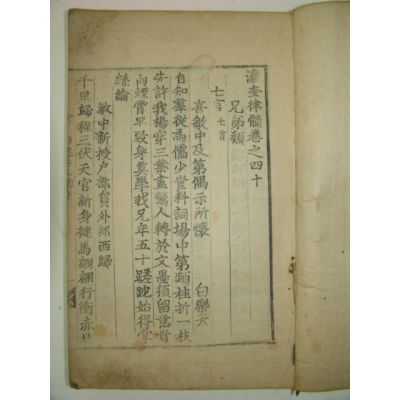 瀛奎律髓卷之四十
兄弟類
七言 七首
喜敏中及第偶示所懷 白樂天
自知羣從爲儒少豈料詞場中第頻桂折一枝
先許我楊穿三葉盡驚人轉於文墨須留意貴
向煙霄早致身莫學我兄年五十蹉跎始得掌
絲綸
敏中新授户部員外郎西歸
千里歸程三伏天官新身健馬翩翩行衝赤日